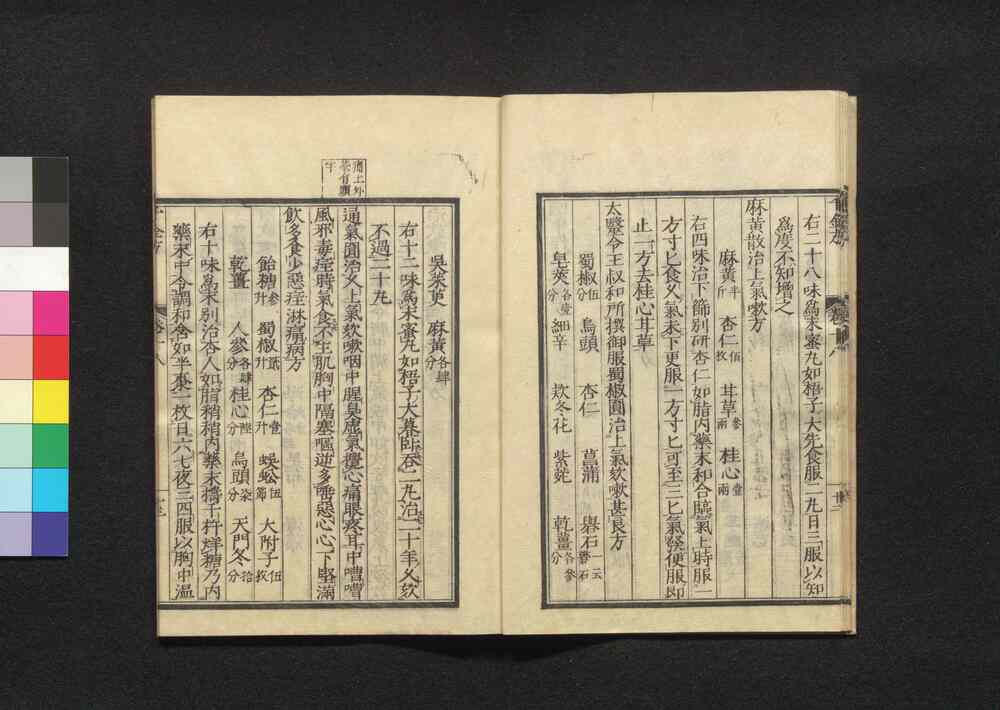 右二十八味爲末蜜丸如梧子大先食服二丸日三服以知
爲度不知增之
麻黃散治上氣嗽方
麻黃半斤 杏仁伍枚 甘草參兩 桂心壹兩
右四味治下篩別研杏仁如脂內藥末和合臨氣上時服一
方寸匕食久氣未下更服一方寸匕可至三匕氣發便服即
止一方去桂心甘草
太醫令王叔和所撰御服蜀椒圓治上氣欬嗽甚良方
蜀椒伍分 烏頭 杏仁 菖蒲 礜石一云礬石
皂莢各壹分 細辛 欵冬花 紫菀 乾薑各參分
吳茱萸 麻黃各肆分
右十二味爲末蜜丸如梧子大暮臥吞二丸治二十年久欬
不過二十丸
通氣圓治久上氣欬嗽咽中腥臭虛氣攪心痛眼疼耳中嘈嘈
風邪毒疰時氣食不生肌胸中隔塞嘔逆多唾惡心心下堅滿
飲多食少惡疰淋痛病方
飴糖參升 蜀椒貳升 杏仁壹升 蜈蚣伍節 大附子伍枚
乾薑 人參各肆分 桂心陸分 烏頭柒分 天門冬拾分
右十味爲末別治杏人如脂稍稍內藥末擣千杵烊糖乃內
藥末中令調和含如半棗一枚日六七夜三四服以胸中溫